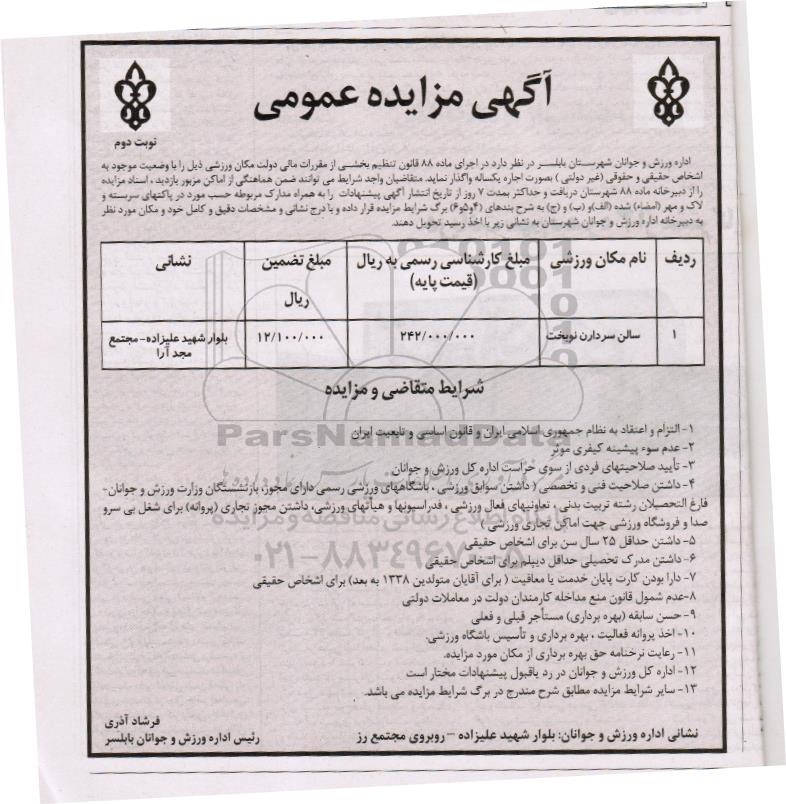 آگهی مزایده عمومی
نوبت دوم
اداره ورزش و جوانان شهرستان بابلسر در نظر دارد در اجرای ماده ۸۸ قانون تنظیم بخشی از مقررات مالی دولت مکان ورزشی ذیل را با وضعیت موجود به
اشخاص حقیقی و حقوقی (غیر دولتی) بصورت اجاره یکساله واگذار نماید. متقاضیان واجد شرایط می توانند ضمن هماهنگی از اماکن مزبور بازدید، اسناد مزایده
را از دبیرخانه ماده ۸۸ شهرستان دریافت و حداکثر بمدت ۷ روز از تاریخ انتشار آگهی پیشنهادات را به همراه مدارک مربوطه حسب مورد در پاکتهای سربسته و
لاک و مهر (امضاء) شده (الف)و (ب) و (ج) به شرح بندهای (۴و۵و۶) برگ شرایط مزایده قرار داده و با درج نشانی و مشخصات دقیق و کامل خود و مکان مورد نظر
به دبیرخانه اداره ورزش و جوانان شهرستان به نشانی زیر با اخذ رسید تحویل دهند.
ردیف نام مکان ورزشی مبلغ کارشناسی رسمی به ریال (قیمت پایه) مبلغ تضمین ریال نشانی
۱ سالن سردارن نوبخت ۲۴۲/۰۰۰/۰۰۰ ۱۲/۱۰۰/۰۰۰ بلوار شهید علیزاده- مجتمع مجد آرا
شرایط متقاضی و مزایده
۱- التزام و اعتقاد به نظام جمهوری اسلامی ایران و قانون اساسی و تابعیت ایران
۲- عدم سوء پیشینه کیفری موثر
۳- تأیید صلاحیتهای فردی از سوی حراست اداره کل ورزش و جوانان
۴- داشتن صلاحیت فنی و تخصصی ( داشتن سوابق ورزشی ، باشگاههای ورزشی رسمی دارای مجوز، بازنشستگان وزارت ورزش و جوانان-
فارغ التحصیلان رشته تربیت بدنی ، تعاونیهای فعال ورزشی ، فدراسیونها و هیأتهای ورزشی، داشتن مجوز تجاری (پروانه) برای شغل بی سرو
صدا و فروشگاه ورزشی جهت اماکن تجاری ورزشی )
۵- داشتن حداقل ۲۵ سال سن برای اشخاص حقیقی
۶- داشتن مدرک تحصیلی حداقل دیپلم برای اشخاص حقیقی
۷- دارا بودن کارت پایان خدمت یا معافیت ( برای آقایان متولدین ۱۳۳۸ به بعد) برای اشخاص حقیقی
۸-عدم شمول قانون منع مداخله کارمندان دولت در معاملات دولتی
۹- حسن سابقه (بهره برداری) مستأجر قبلی و فعلی
۱۰- اخذ پروانه فعالیت ، بهره برداری و تأسیس باشگاه ورزشی.
۱۱- رعایت نرخنامه حق بهره برداری از مکان مورد مزایده.
۱۲- اداره کل ورزش و جوانان در رد یاقبول پیشنهادات مختار است
۱۳- سایر شرایط مزایده مطابق شرح مندرج در برگ شرایط مزایده می باشد.
نشانی اداره ورزش و جوانان: بلوار شهید علیزاده – روبروی مجتمع رز
فرشاد آذری
رئیس اداره ورزش و جوانان بابلسر
ParsNamadData